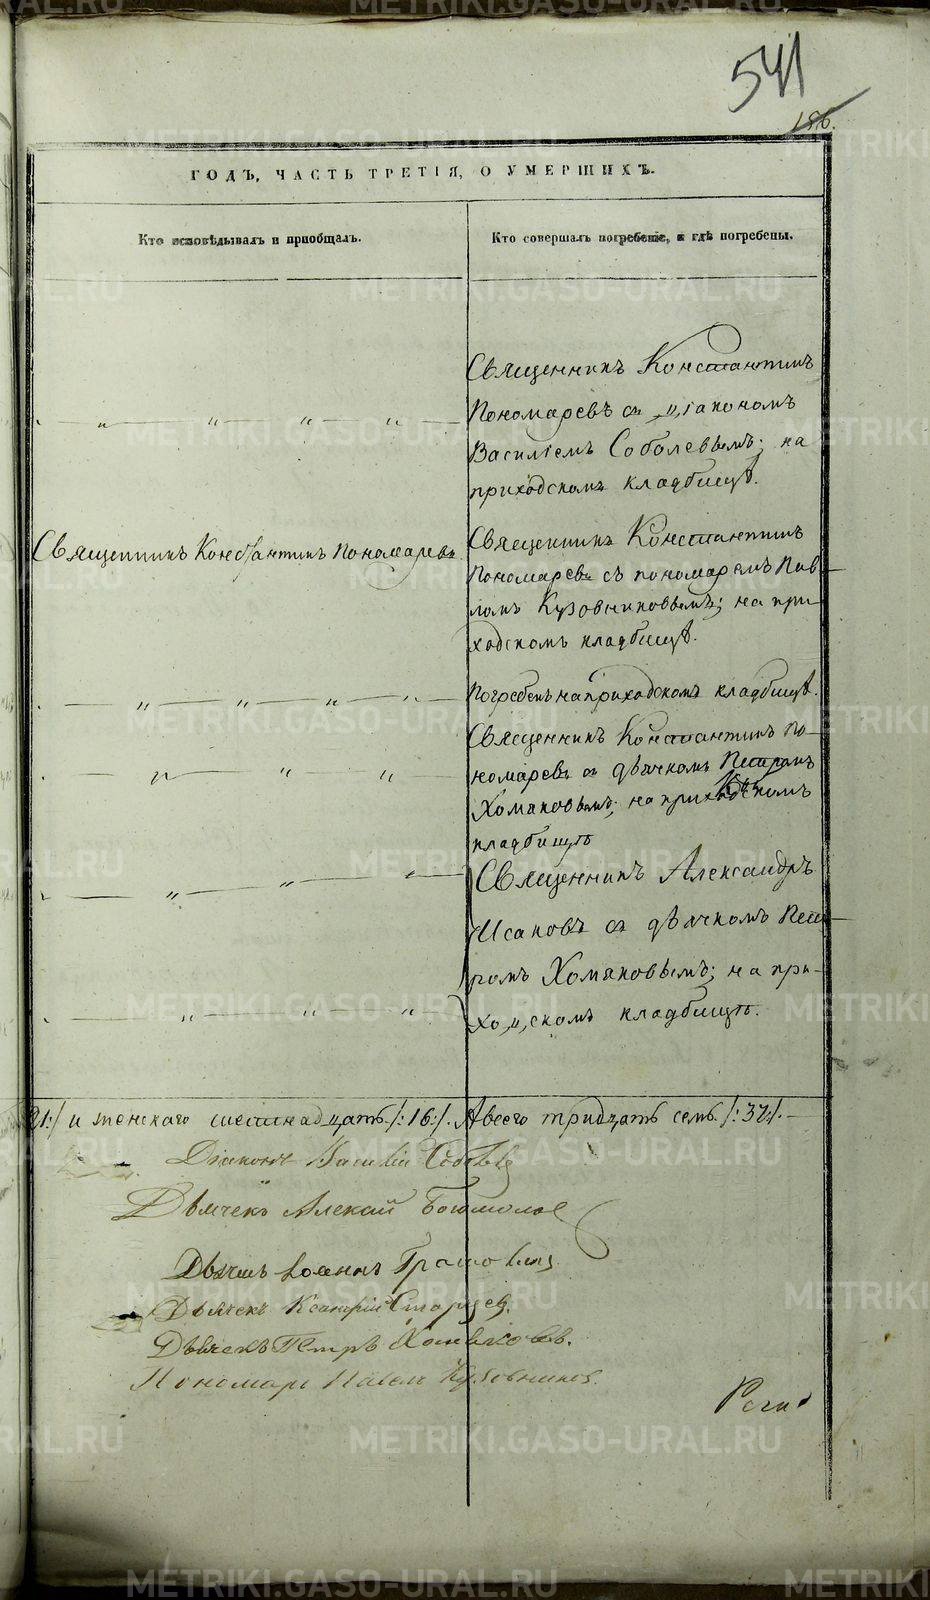 541
186.
ГОДЪ, ЧАСТЬ ТРЕТІЯ, О УМЕРШИХЪ.
Кто исповѣдывалъ и пріобщалъ.
Кто совершалъ погребеніе, и гдѣ погребены.
Священникъ Константинъ
Пономаревъ съ діакономъ
Василіемъ Соболевымъ; на
приходскомъ кладбищѣ.
Священникъ Константинъ Пономаревъ
Священникъ Константинъ
Пономаревъ съ пономаремъ Пав-
ломъ Кузовниковымъ; на при-
ходскомъ кладбищѣ.
Погребенъ на приходскомъ кладбищѣ.
Священникъ Константинъ По-
номаревъ съ дьячкомъ Петромъ
Хомяковымъ; на приходскомъ
кладбищѣ
Священникъ Александръ
Исаковъ съ дьячкомъ Пет-
ромъ Хомяковымъ; на при-
ходскомъ кладбищѣ.
21:/ и женскаго шестнадцать /:16:/. А всего тридцать семь /:37:/. —
Діаконъ Василій Соболевъ
Дьячекъ Алексій
Дьячекъ Іоаннъ
Дьячекъ Старцев.
Дьячекъ Петръ Хомяковъ.
Пономарь Павелъ Кузовников.
METRIKI.GASO-URAL.RU